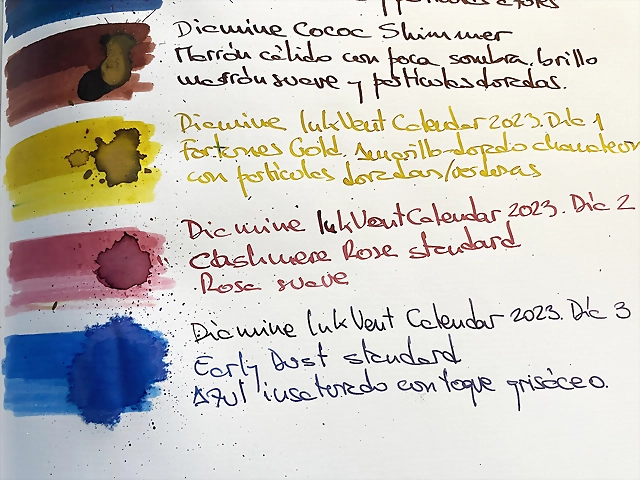 partículas
Diamine Cocoa Shimmer
Marrón cálido con poca sombra, brillo
marrón suave y partículas doradas.
Diamine InkVent Calendar 2023. Día 1
Fortunes Gold. Amarillo-dorado
con partículas doradas/verdosas
Diamine InkVent Calendar 2023. Día 2
Cashmere Rose standard
Rosa suave
Diamine InkVent Calendar 2023. Día 3
Early Dust standard
Azul insaturado con toque grisáceo.